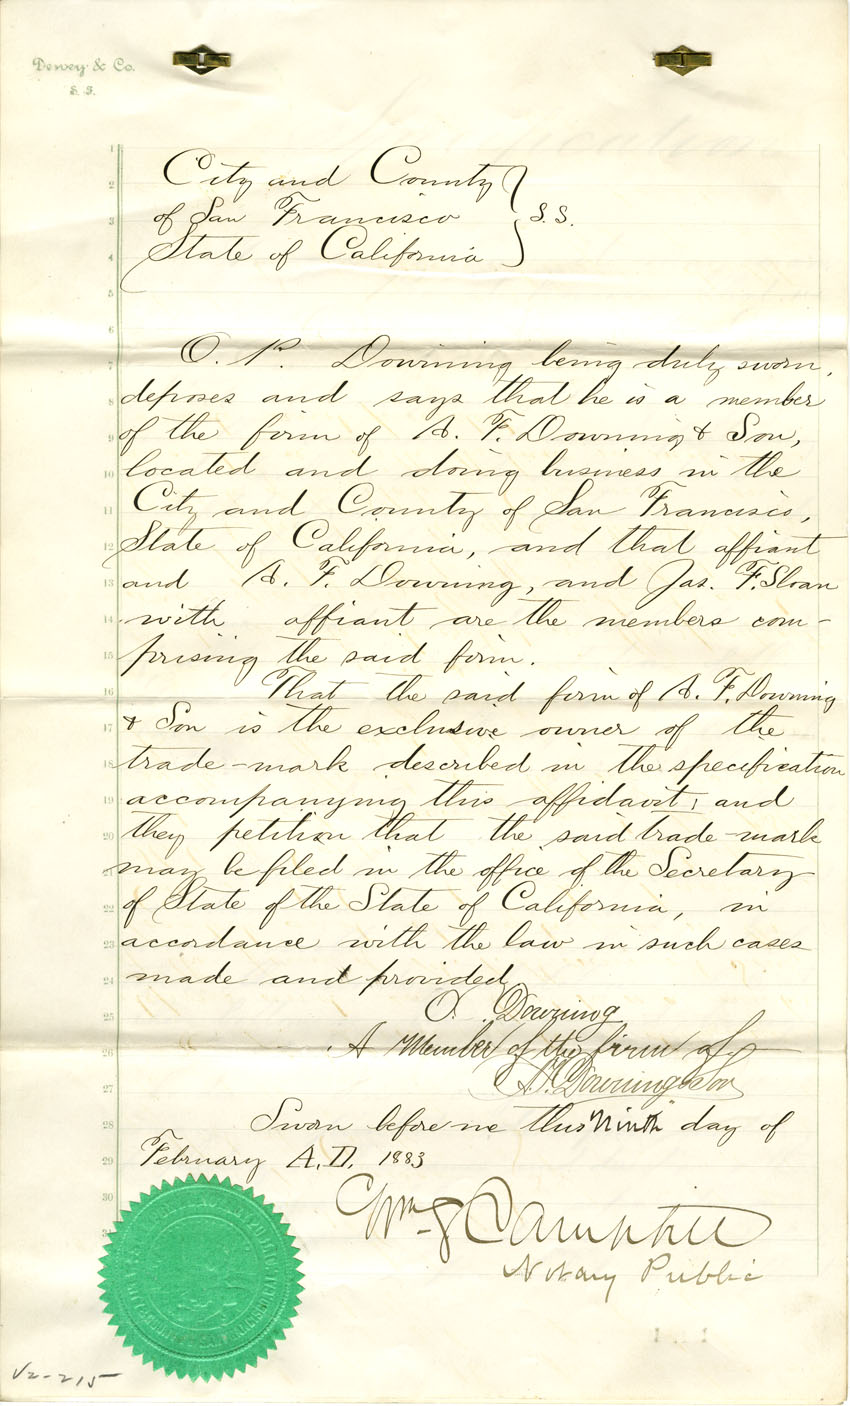 Dewey & Co.
S. F.
City and County
of San Francisco } S.S.
State of California
O. P. Downing being duly sworn,
deposes and says that he is a member
of the firm of A. F. Downing & Son,
located and doing business in the
City and County of San Francisco,
State of California, and that affiant
and A. F. Downing, and Jas. F. Sloan
with affiant are the members com-
prising the said firm.
That the said firm of A. F. Downing
& Son is the exclusive owner of the
trade-mark described in the specification
accompanying this affidavit; and
they petition that the said trade-mark
may be filed in the office of the Secretary
of State of the State of California, in
accordance with the law in such cases
made and provided
O. Downing
A Member of the firm of
A. F. Downing & Son
Sworn before me this Ninth day of
February A.D. 1883
Wm Campbell
Notary Public
V2-215